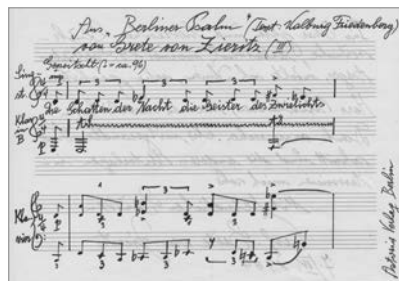 Aus „Berliner Psalm" (Text: Kolbnig Friedenberg)
von Grete von Zieritz (II)
(♩ = ca. 96)
Sing-
st.
Die Schatten der Nacht die Geister des Zwielichts
Klar.
in
B
3
3
3
Kla-
vier
3
3
3
Verlag Berlin